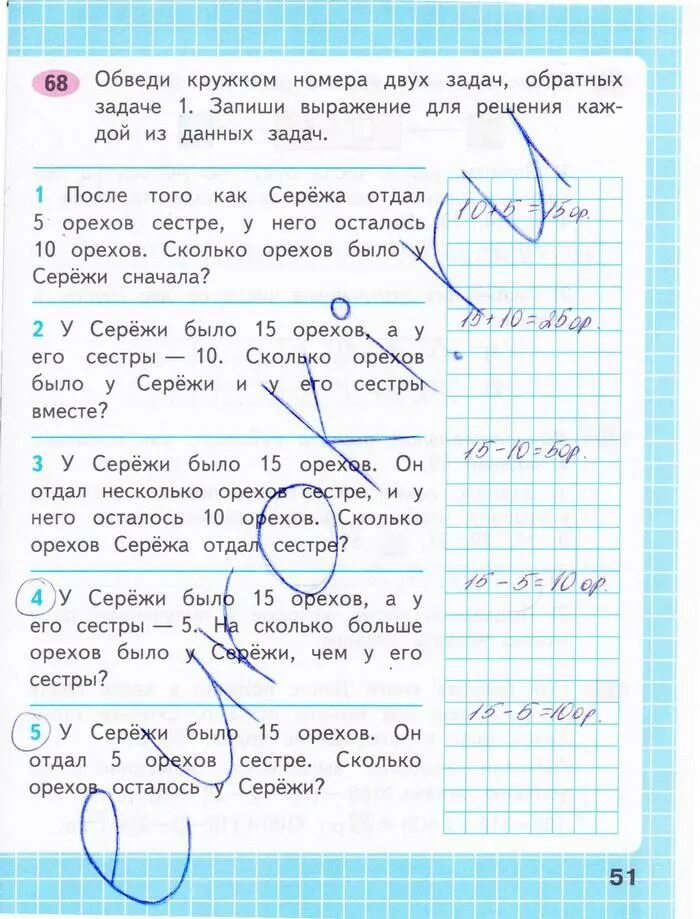 68 Обведи кружком номера двух задач, обратных
задаче 1. Запиши выражение для решения каж-
дой из данных задач.
1 После того как Серёжа отдал
5 орехов сестре, у него осталось
10 орехов. Сколько орехов было у
Серёжи сначала?
10+5=15ор.
2 У Серёжи было 15 орехов, а у
его сестры — 10. Сколько орехов
было у Серёжи и у его сестры
вместе?
15+10=25ор.
3 У Серёжи было 15 орехов. Он
отдал несколько орехов сестре, и у
него осталось 10 орехов. Сколько
орехов Серёжа отдал сестре?
15-10=5ор.
4 У Серёжи было 15 орехов, а у
его сестры — 5. На сколько больше
орехов было у Серёжи, чем у его
сестры?
15-5=10ор.
5 У Серёжи было 15 орехов. Он
отдал 5 орехов сестре. Сколько
орехов осталось у Серёжи?
15-5=10ор.
51